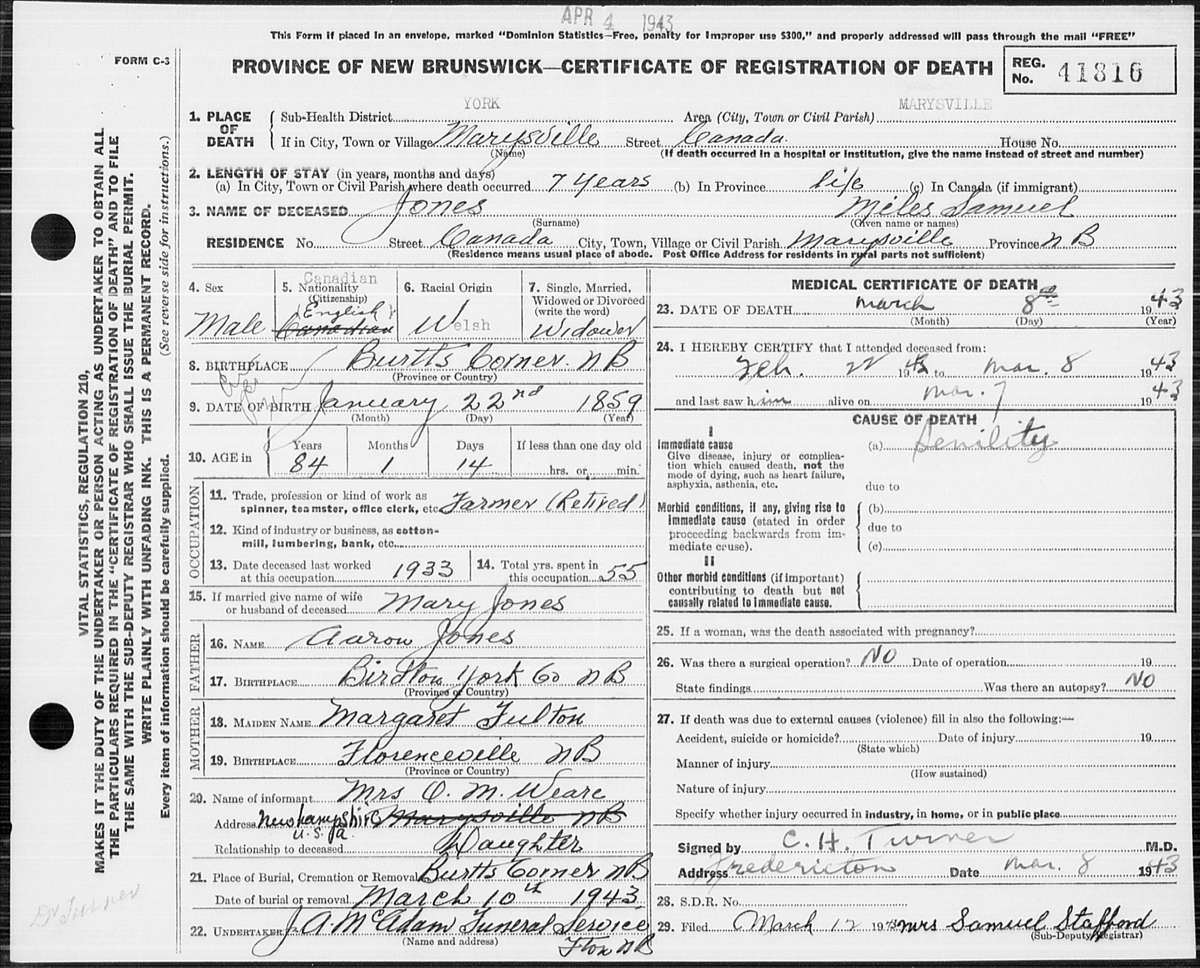 APR 4 1943
This Form if placed in an envelope, marked "Dominion Statistics—Free, penalty for improper use $300," and properly addressed will pass through the mail "FREE"
FORM C-3
PROVINCE OF NEW BRUNSWICK—CERTIFICATE OF REGISTRATION OF DEATH
REG. No. 41816
VITAL STATISTICS, REGULATION 210,
MAKES IT THE DUTY OF THE UNDERTAKER OR PERSON ACTING AS UNDERTAKER TO OBTAIN ALL
THE PARTICULARS REQUIRED IN THE "CERTIFICATE OF REGISTRATION OF DEATH" AND TO FILE
THE SAME WITH THE SUB-DEPUTY REGISTRAR WHO SHALL ISSUE THE BURIAL PERMIT.
WRITE PLAINLY WITH UNFADING INK. THIS IS A PERMANENT RECORD.
Every item of information should be carefully supplied. (See reverse side for instructions.)
Dr Turner
YORK MARYSVILLE
1. PLACE OF DEATH Sub-Health District Area (City, Town or Civil Parish)
If in City, Town or Village Marysville Street Canada House No.
(Name) (If death occurred in a hospital or institution, give the name instead of street and number)
2. LENGTH OF STAY (in years, months and days)
(a) In City, Town or Civil Parish where death occurred 7 years (b) In Province life (c) In Canada (if immigrant)
3. NAME OF DECEASED Jones Miles Samuel
(Surname) (Given name or names)
RESIDENCE No. Street Canada City, Town, Village or Civil Parish Marysville Province NB
(Residence means usual place of abode. Post Office Address for residents in rural parts not sufficient)
4. Sex Male
5. Nationality (Citizenship) Canadian (English) Canadian
6. Racial Origin Welsh
7. Single, Married, Widowed or Divorced (write the word) Widower
8. BIRTHPLACE Burtts Corner. NB
(Province or Country)
9. DATE OF BIRTH January 22nd 1859
(Month) (Day) (Year)
10. AGE in Years 84 Months 1 Days 14 If less than one day old hrs. or min.
OCCUPATION
11. Trade, profession or kind of work as spinner, teamster, office clerk, etc. Farmer (Retired)
12. Kind of industry or business, as cotton-mill, lumbering, bank, etc.
13. Date deceased last worked at this occupation 1933
14. Total yrs. spent in this occupation 55
15. If married give name of wife or husband of deceased Mary Jones
FATHER
16. NAME Aaron Jones
17. BIRTHPLACE Birdton York Co NB
(Province or Country)
MOTHER
18. MAIDEN NAME Margaret Fulton
19. BIRTHPLACE Florenceville NB
(Province or Country)
20. Name of informant Mrs O. M. Weare
Address New hampshire U.S.A. Marysville NB
Relationship to deceased Daughter
21. Place of Burial, Cremation or Removal Burtts Corner NB
Date of burial or removal March 10th 1943
22. UNDERTAKER J. A. McAdam Funeral Service
(Name and address) Fton NB
MEDICAL CERTIFICATE OF DEATH
23. DATE OF DEATH March 8th 1943
(Month) (Day) (Year)
24. I HEREBY CERTIFY that I attended deceased from:
Feb. 1943 to Mar. 8 1943
and last saw him alive on Mar. 7 1943
CAUSE OF DEATH
I
Immediate cause (a) Senility
Give disease, injury or complication which caused death, not the mode of dying, such as heart failure, asphyxia, asthenia, etc.
due to
Morbid conditions, if any, giving rise to immediate cause (stated in order proceeding backwards from immediate cause).
(b)
due to
(c)
II
Other morbid conditions (if important) contributing to death but not causally related to immediate cause.
25. If a woman, was the death associated with pregnancy?
26. Was there a surgical operation? No Date of operation 19
State findings Was there an autopsy? No
27. If death was due to external causes (violence) fill in also the following:—
Accident, suicide or homicide? Date of injury 19
(State which)
Manner of injury
(How sustained)
Nature of injury
Specify whether injury occurred in industry, in home, or in public place
Signed by C. H. Turner M.D.
Address Fredericton Date Mar. 8 1943
28. S.D.R. No.
29. Filed March 12 1943 Mrs Samuel Stafford
(Sub-Deputy Registrar)